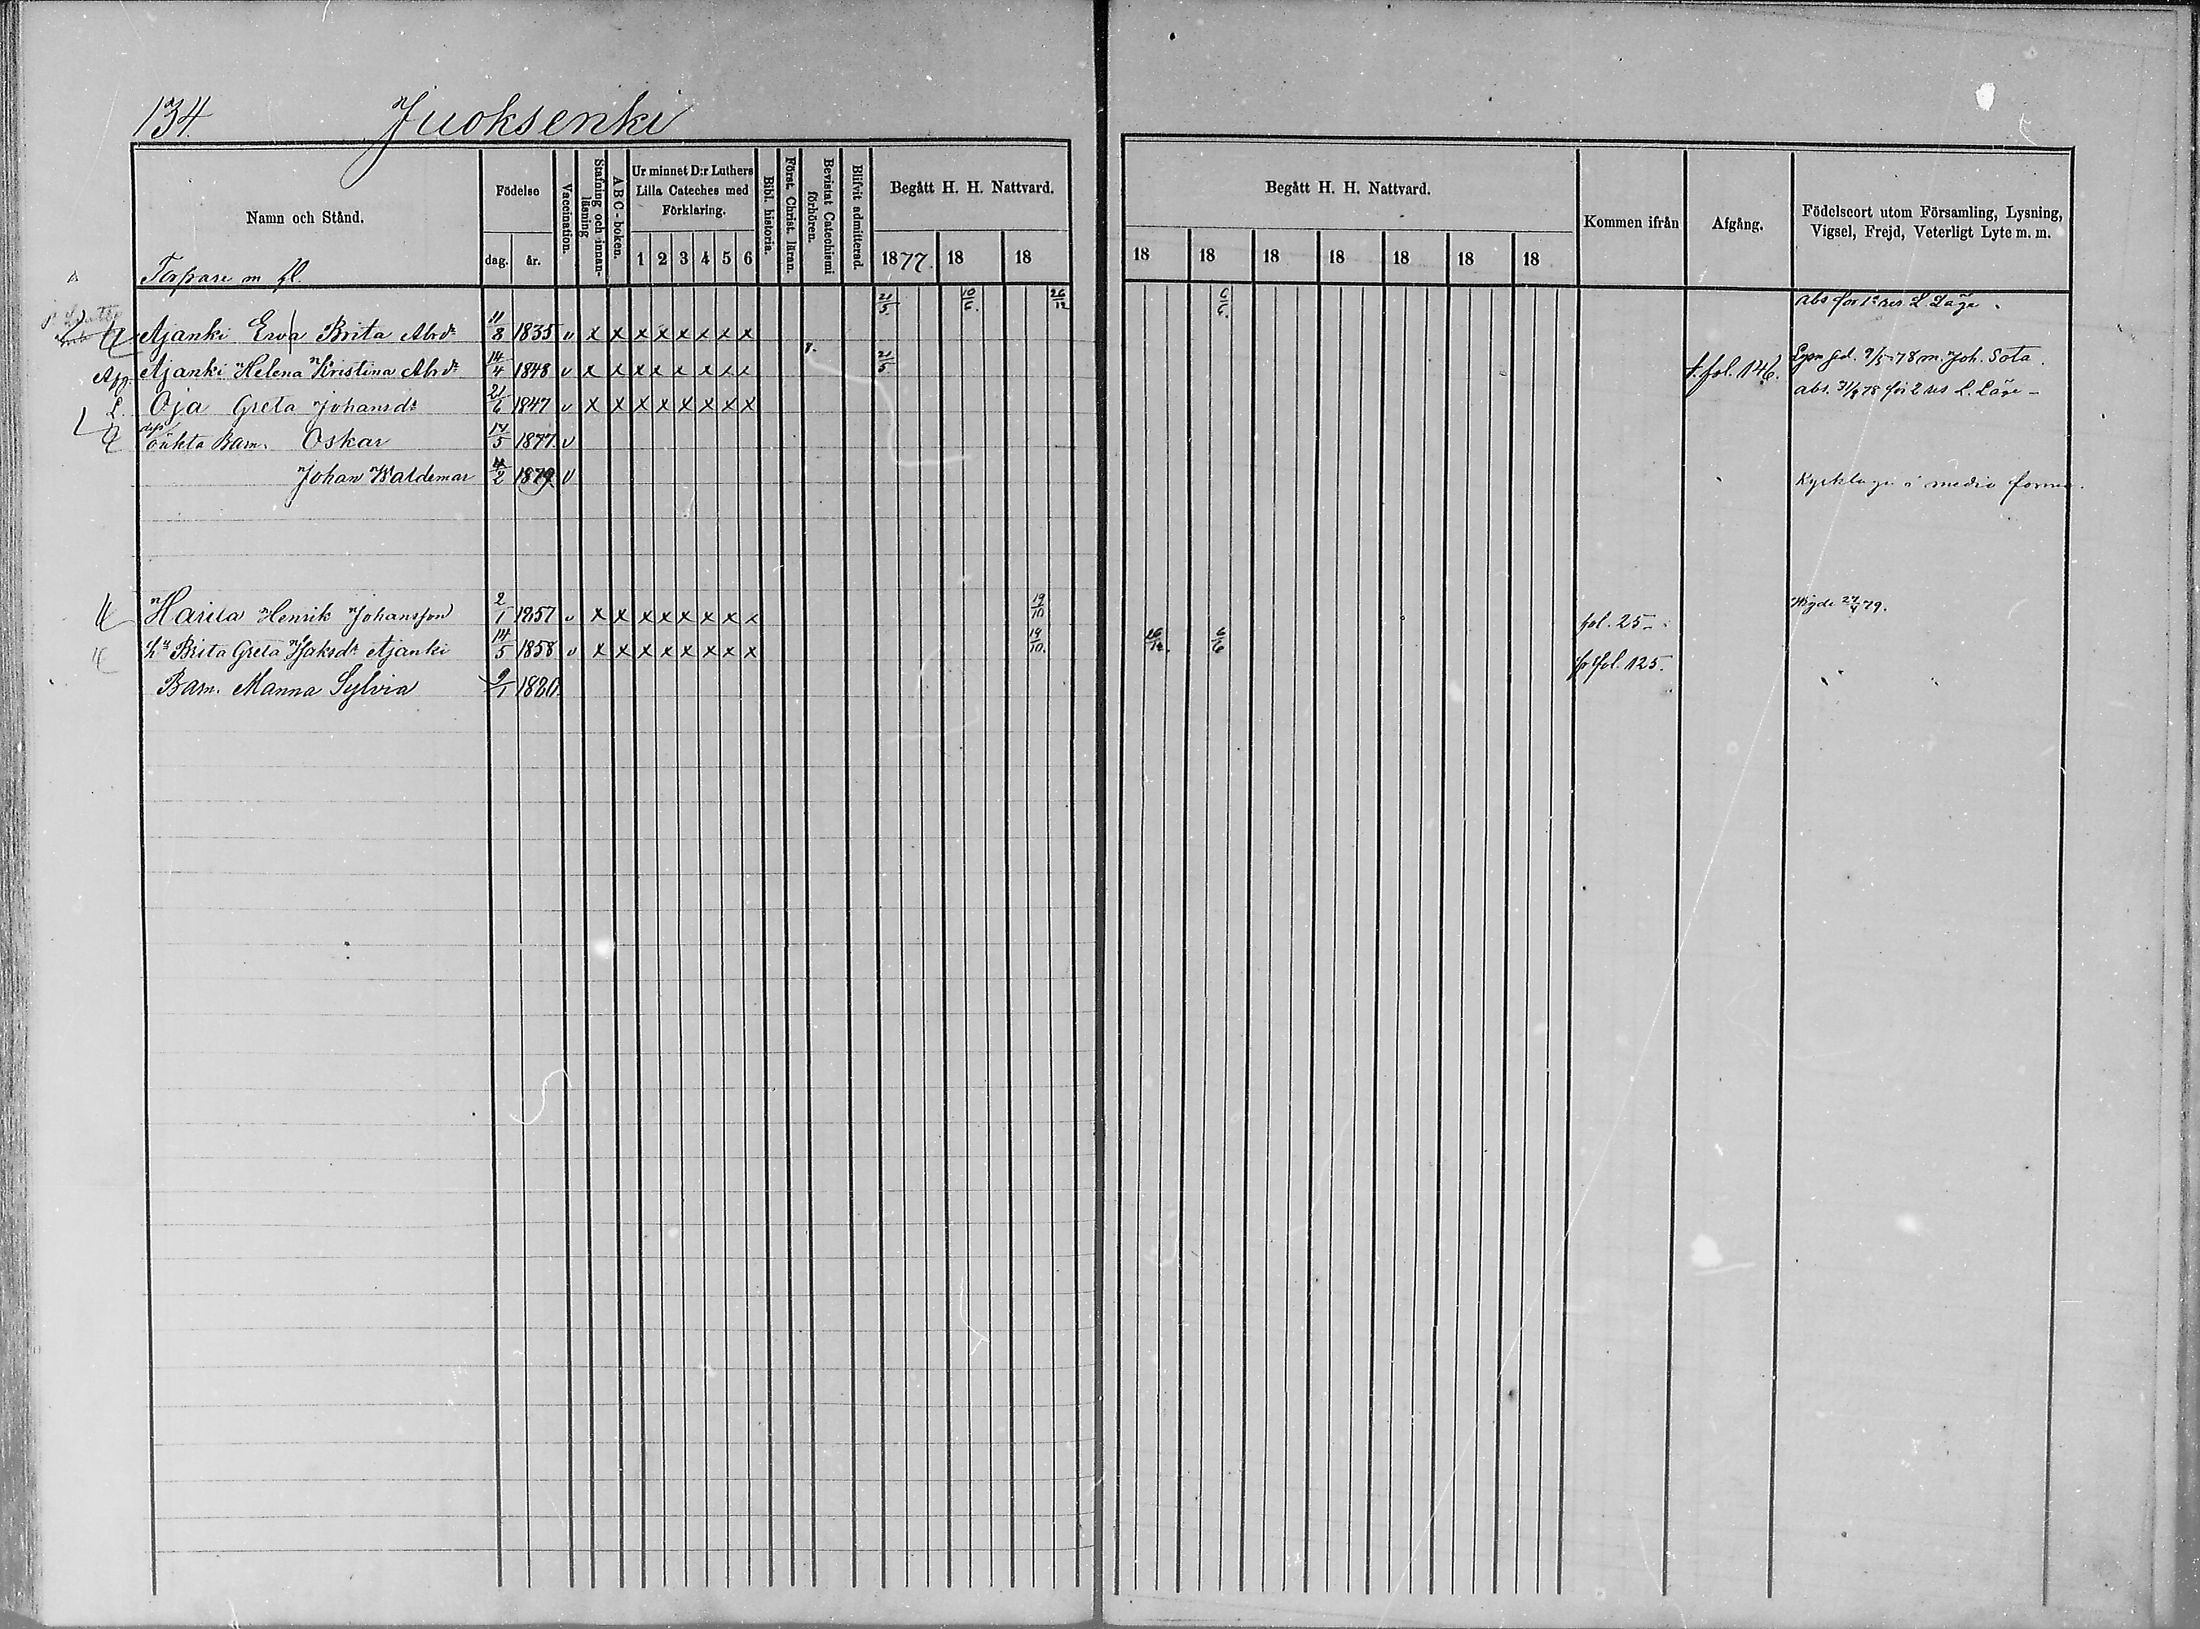 134 Juoksenki
Namn och Stånd. Födelse dag. år. Vaccination. Stafning och innan-läsning A B C-boken. Ur minnet D:r Luthers Lilla Cateches med Förklaring. 1 2 3 4 5 6 Bibl. historia. Först. Christ. läran. Bevistat Catechismi förhören. Blifvit admitterad. Begått H. H. Nattvard. 1877. 18 18
Begått H. H. Nattvard. 18 18 18 18 18 18 18 Kommen ifrån Afgång. Födelseort utom Församling, Lysning, Vigsel, Frejd, Veterligt Lyte m. m.
Torpare m fl.
Ajanki Eva Brita Abrdr 11/8 1835 v x x x x x x x x 21/5 10/6. 26/12 6/6. abs för 1a res L. Läge.
Afg. Ajanki Helena Kristina Abrdr 14/4 1848 v x x x x x x x x 21/5 t. fol. 146. Lysn 9/5 78 m. Joh. Sota.
L. Oja Greta Johansdr 21/6 1847 v x x x x x x x x abs. för 2 res L. Läge -
oäkta Barn. Oskar 17/5 1877 v
Johan Waldemar 4/2 1879 v Kyrktagn i media forma.
Harila Henrik Johansson 2/1 1857 v x x x x x x x x 19/10 fol. 25 - Wigde 27/4 79.
h:u Brita Greta Isaksdr Ajanki 14/5 1858 v x x x x x x x x 19/10. 26/12. 6/6 fr fol. 125.
Barn. Manna Sylvia 9/1 1880.